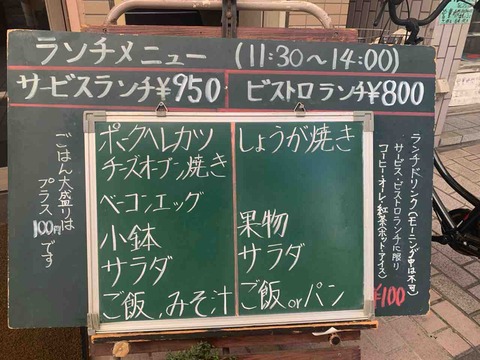 ランチメニュー (11:30〜14:00)
サービスランチ¥950
ビストロランチ¥800
ポークヘレカツ
チーズオーブン焼き
ベーコンエッグ
小鉢
サラダ
ご飯、みそ汁
しょうが焼き
果物
サラダ
ご飯orパン
ごはん大盛りは
プラス100円です
ランチドリンク(モーニング中は不可)
サービス・ビストロランチに限り
コーヒー・オーレ・紅茶(ホット・アイス)
¥100